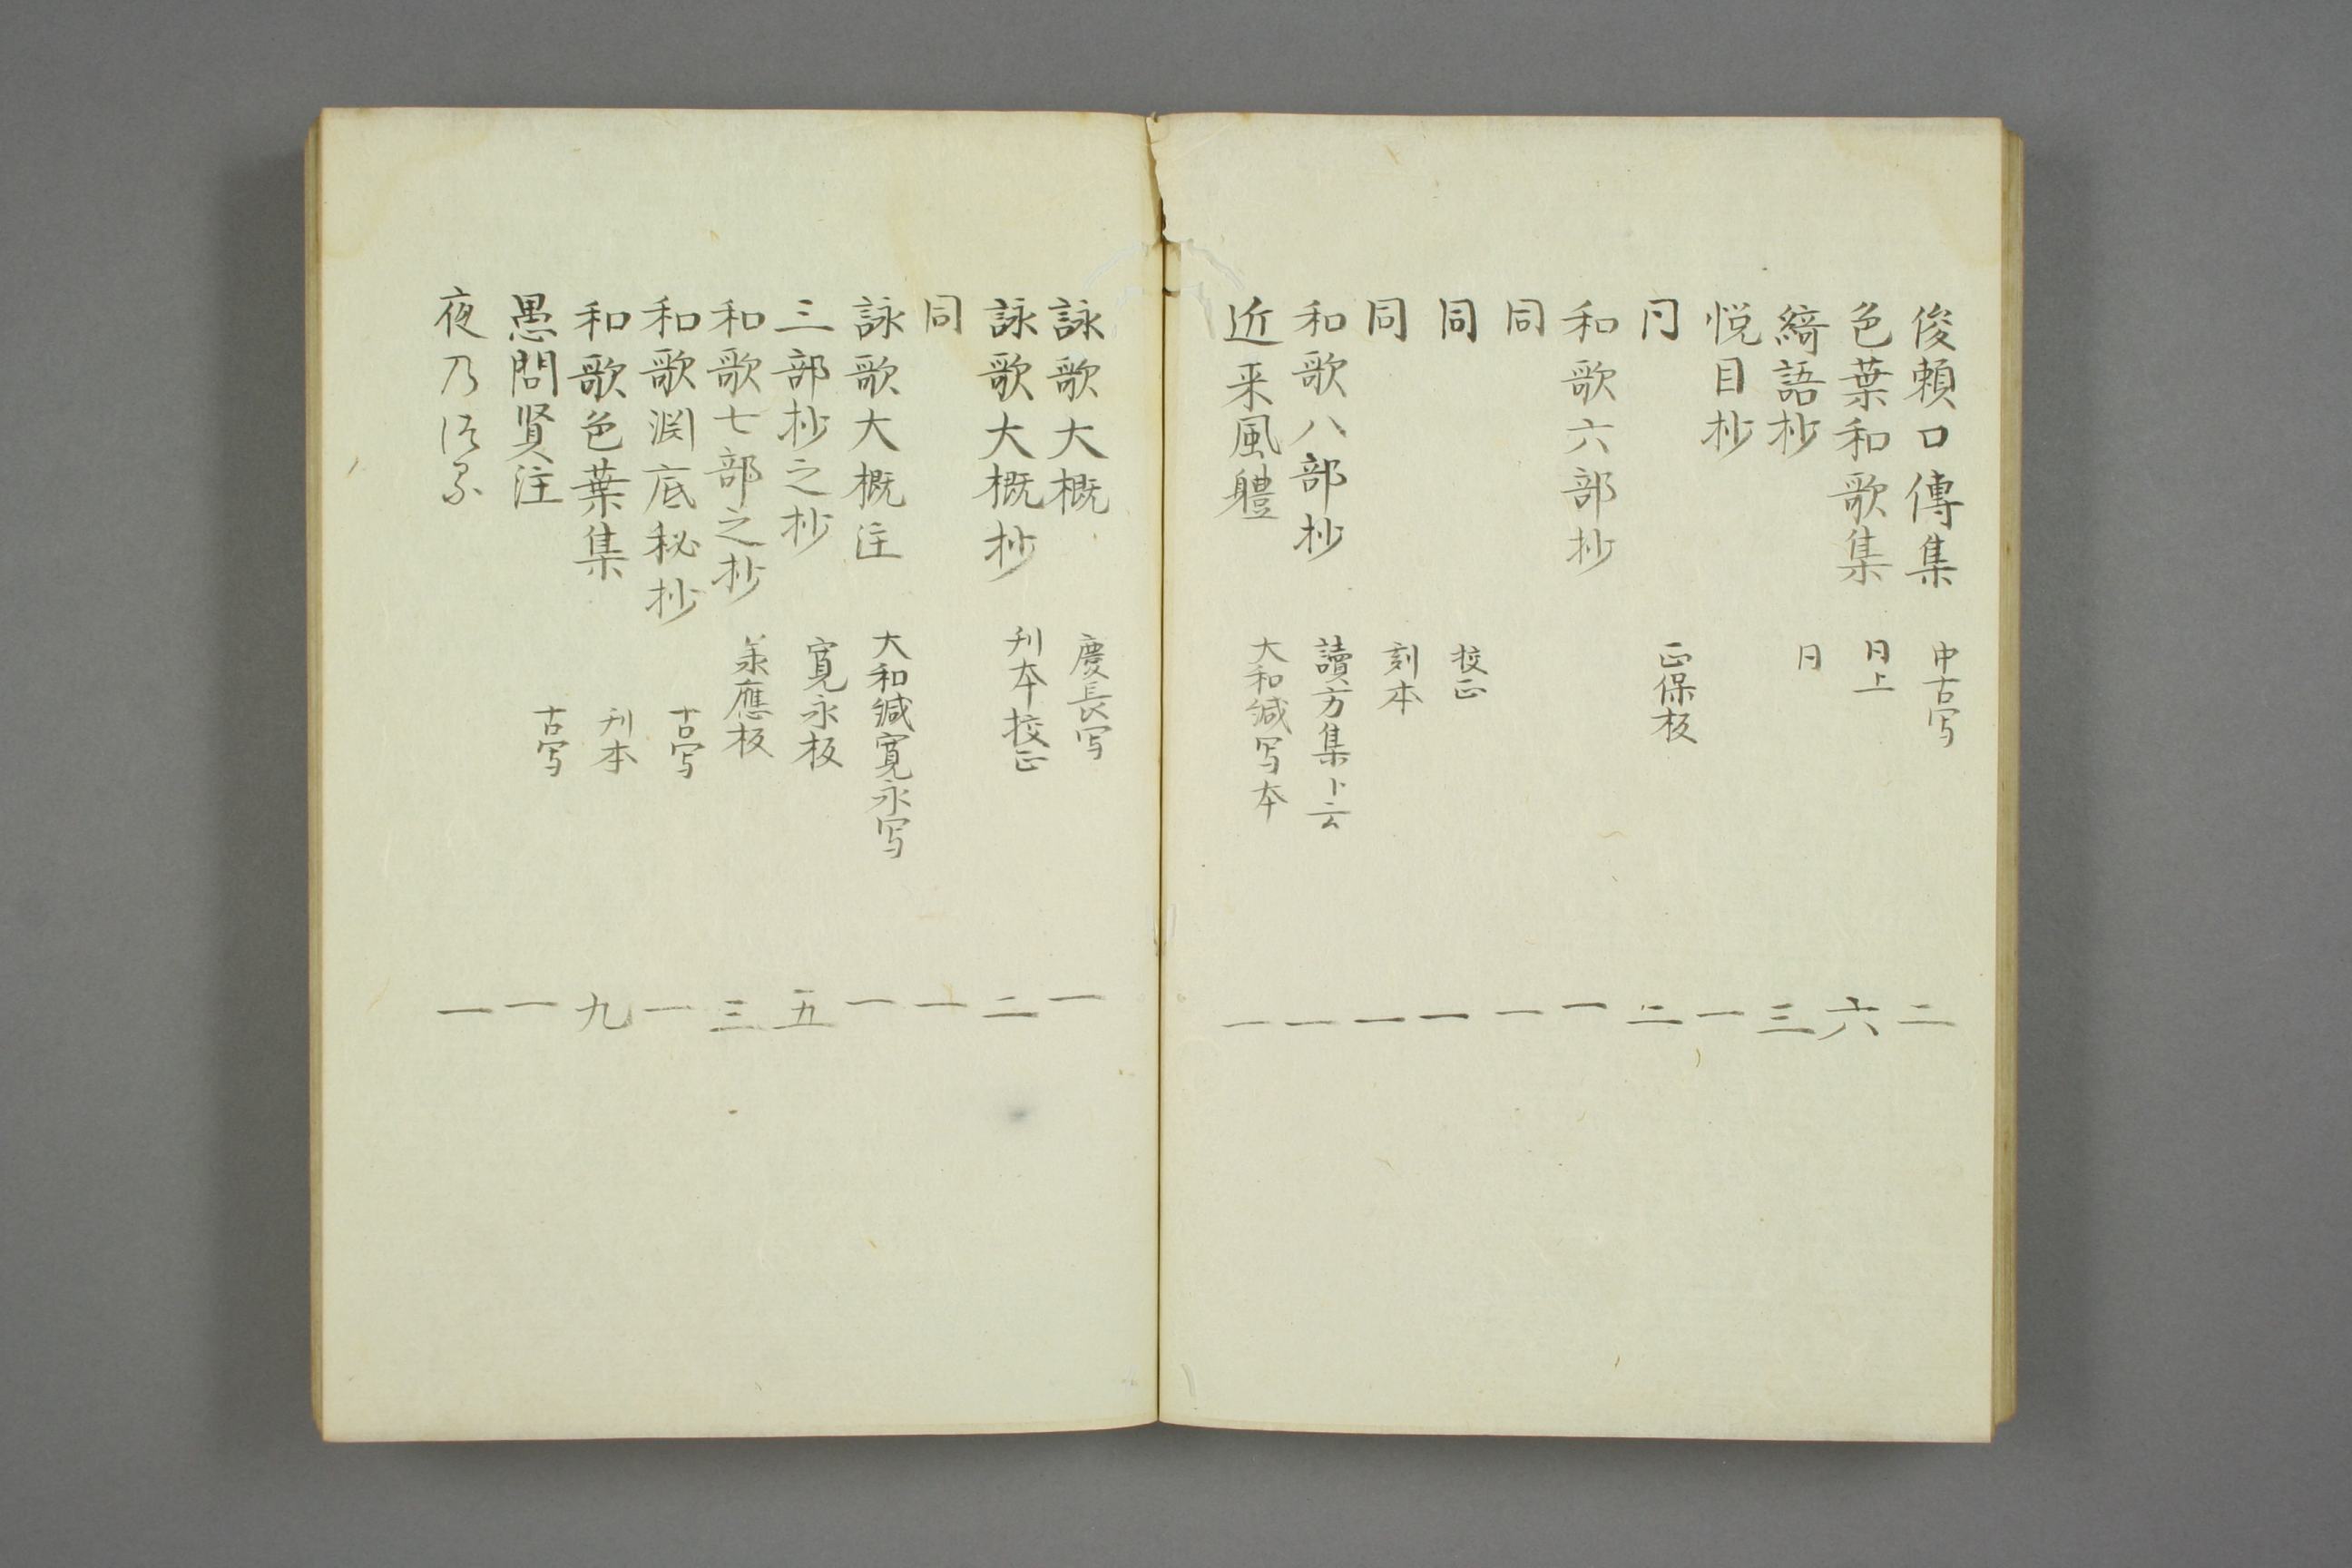 俊頼口傳集 中古写 二
色葉和歌集 同上 六
綺語抄 同 三
悦目抄 一
同 正保板 二
和歌六部抄 一
同 一
同 校正 一
同 刻本 一
和歌八部抄 讀方集ト云 一
近来風軆 大和綴写本 一
詠歌大概 慶長写 一
詠歌大概抄 刊本校正 二
同 一
詠歌大概注 大和綴寛永写 一
三部抄之抄 寛永板 五
和歌七部之抄 承應板 三
和歌渕底秘抄 古写 一
和歌色葉集 刊本 九
愚問賢注 古写 一
夜乃 一